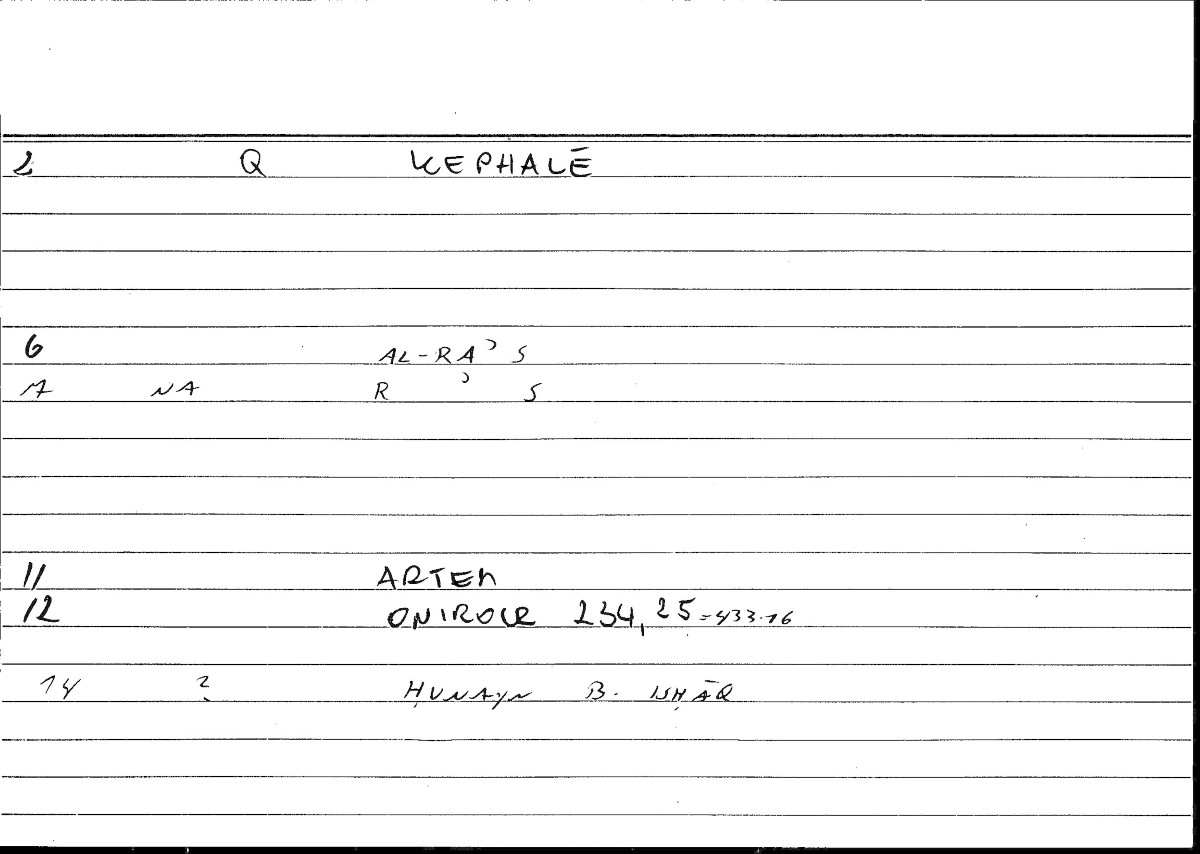 2 Q KEPHALĒ
6 AL-RAʾS
7 NA R ʾ S
11 ARTEM
12 ONIROCR 234,25=433.16
14 ? ḤUNAYN B. ISḤĀQ